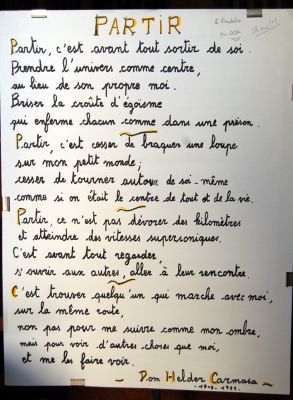 PARTIR
Partir, c'est avant tout sortir de soi.
Prendre l'univers comme centre,
au lieu de son propre moi.
Briser la croûte d'égoïsme
qui enferme chacun comme dans une prison.
Partir, c'est cesser de braquer une loupe
sur mon petit monde;
cesser de tourner autour de soi-même
comme si on était le centre de tout et de la vie.
Partir, ce n'est pas dévorer des kilomètres
et atteindre des vitesses supersoniques.
C'est avant tout regarder,
s'ouvrir aux autres, aller à leur rencontre.
C'est trouver quelqu'un qui marche avec moi,
sur la même route,
non pas pour me suivre comme mon ombre,
mais pour voir d'autres choses que moi,
et me les faire voir.
Dom Helder Camara